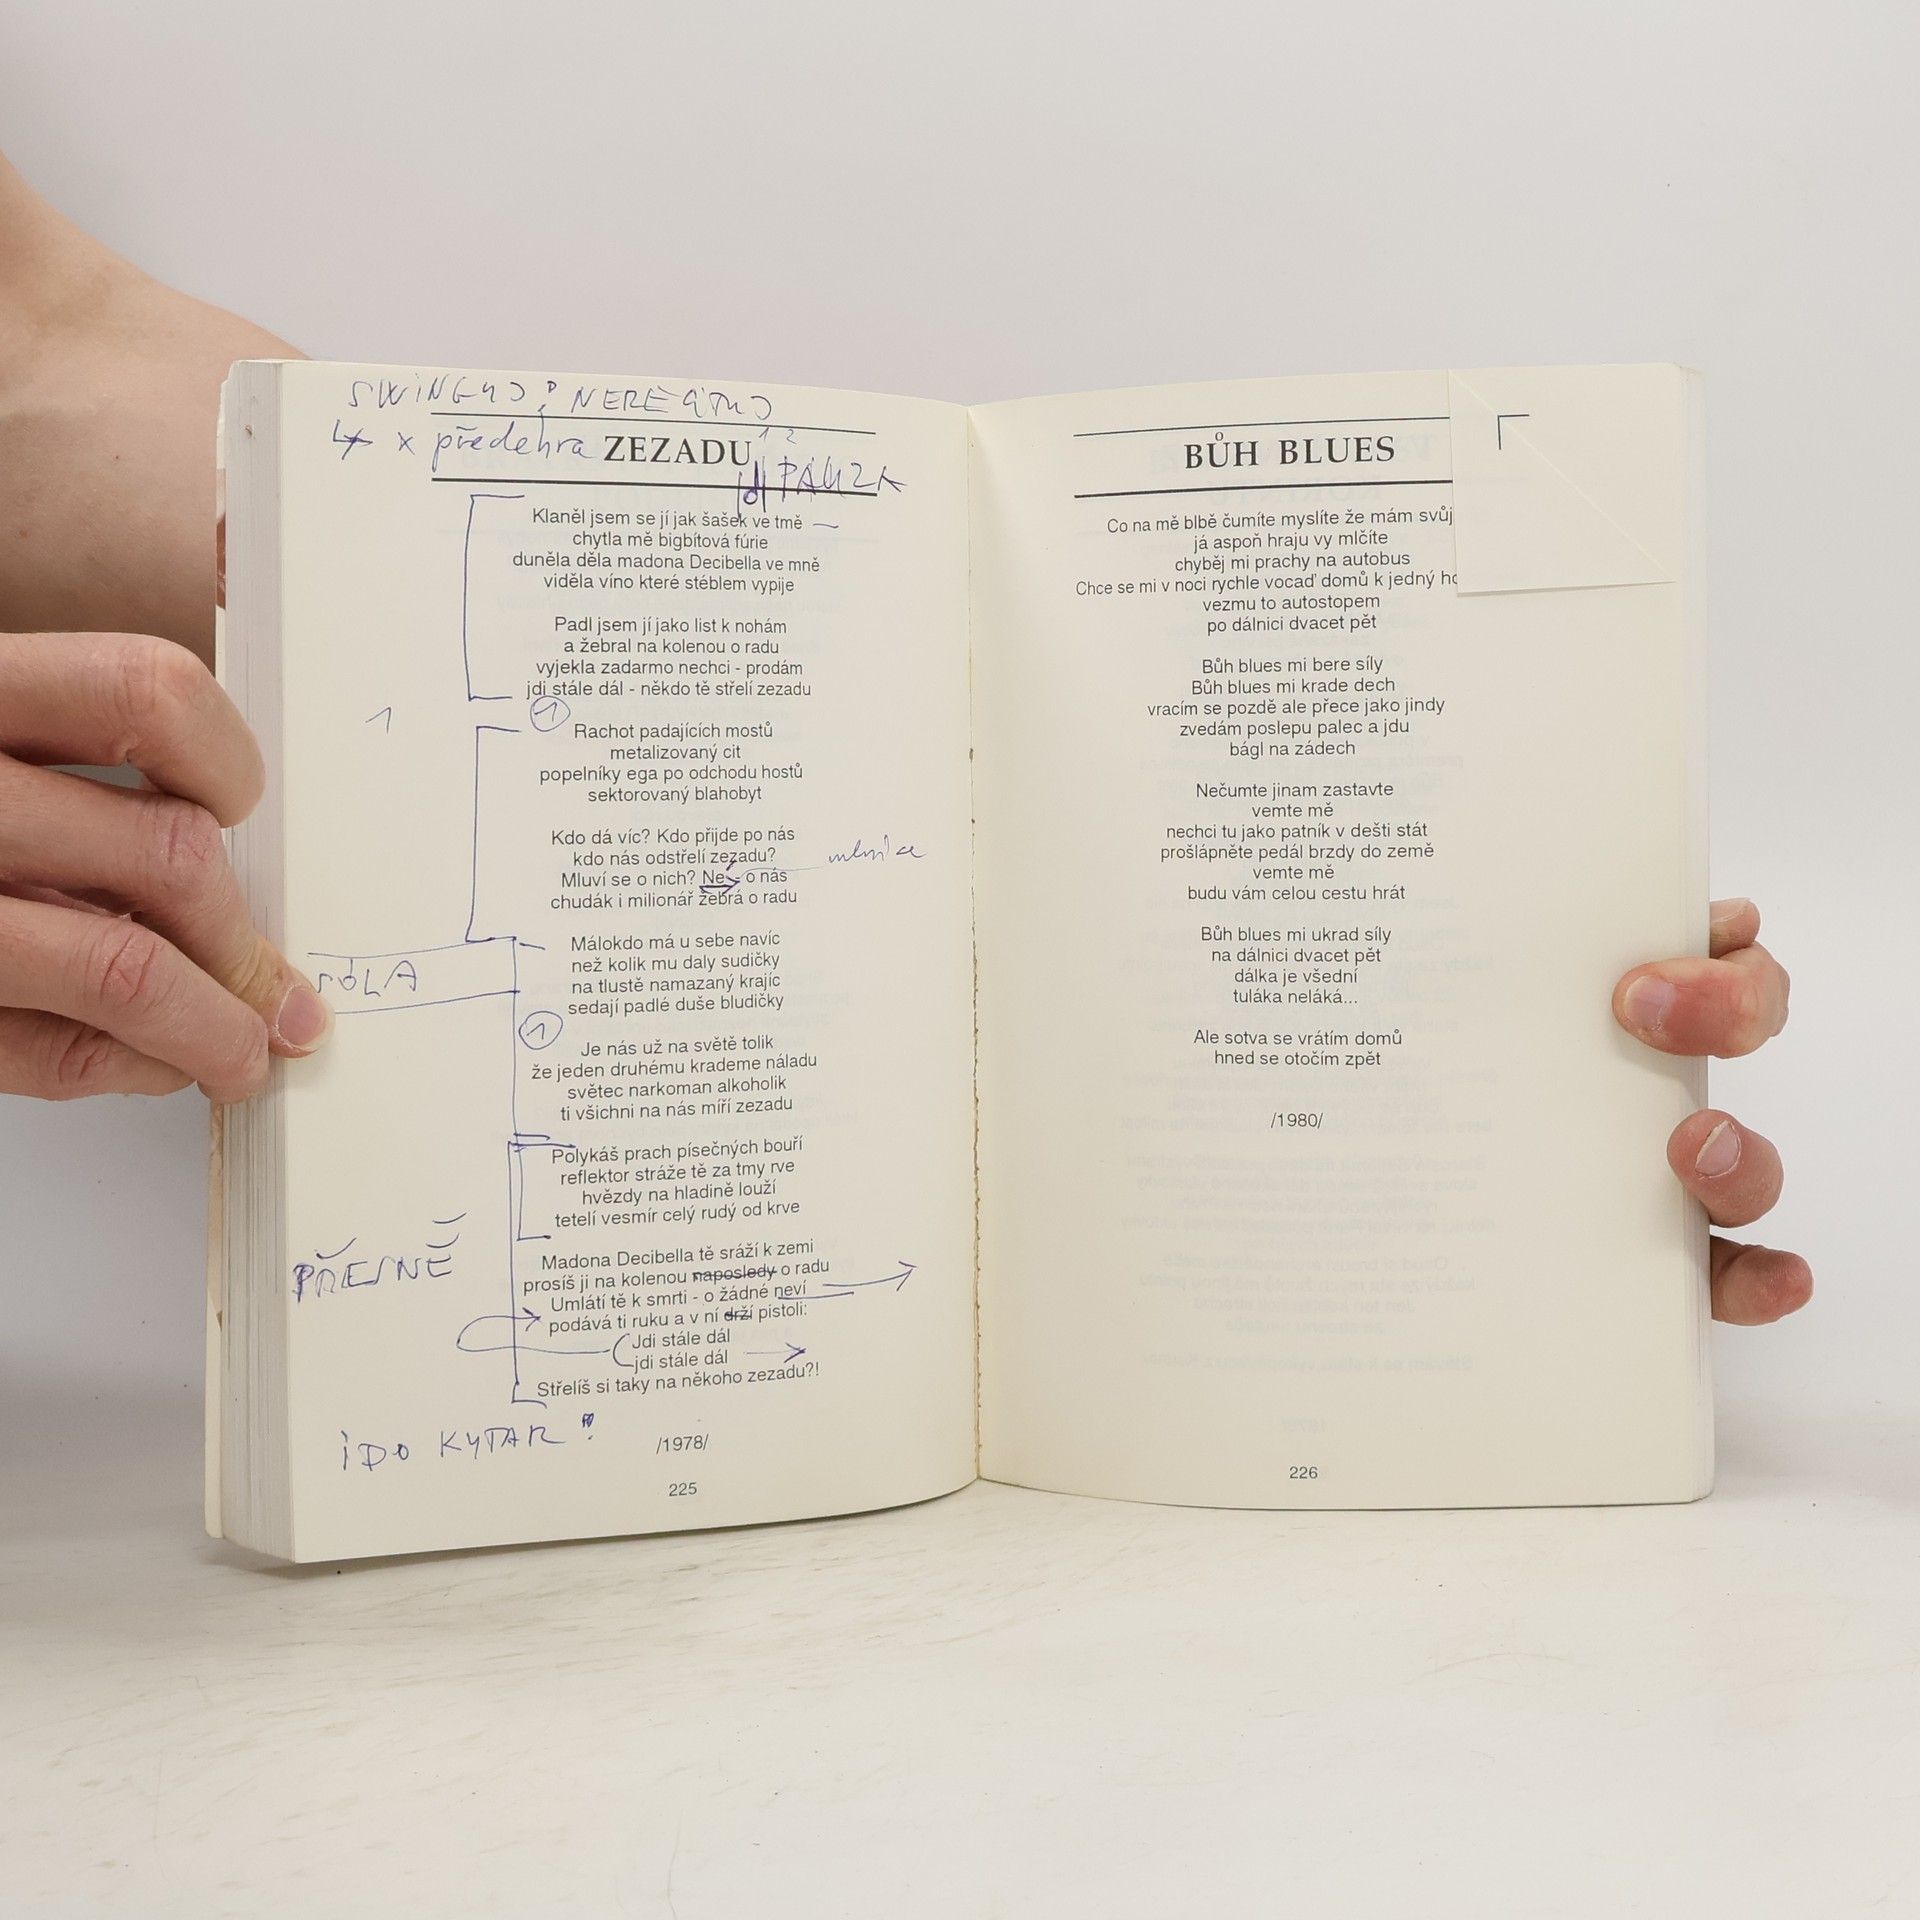 4 x předehra ZEZADU 1 2
PAUZA
Klaněl jsem se jí jak šašek ve tmě
chytla mě bigbítová fúrie
duněla děla madona Decibella ve mně
viděla víno které stéblem vypije
Padl jsem jí jako list k nohám
a žebral na kolenou o radu
vyjekla zadarmo nechci - prodám
jdi stále dál - někdo tě střelí zezadu
1
1
Rachot padajících mostů
metalizovaný cit
popelníky ega po odchodu hostů
sektorovaný blahobyt
Kdo dá víc? Kdo přijde po nás
kdo nás odstřelí zezadu?
Mluví se o nich? Ne - o nás
chudák i milionář žebrá o radu
Málokdo má u sebe navíc
než kolik mu daly sudičky
SÓLA
na tlustě namazaný krajíc
sedají padlé duše bludičky
1
Je nás už na světě tolik
že jeden druhému krademe náladu
světec narkoman alkoholik
ti všichni na nás míří zezadu
Polykáš prach písečných bouří
reflektor stráže tě za tmy rve
hvězdy na hladině louží
tetelí vesmír celý rudý od krve
PŘESNĚ
Madona Decibella tě sráží k zemi
prosíš ji na kolenou naposledy o radu
Umlátí tě k smrti - o žádné neví
podává ti ruku a v ní drží pistoli:
Jdi stále dál
jdi stále dál
Střelíš si taky na někoho zezadu?!
I DO KYTAR!
/1978/
225
BŮH BLUES
Co na mě blbě čumíte myslíte že mám svůj
já aspoň hraju vy mlčíte
chyběj mi prachy na autobus
Chce se mi v noci rychle vocaď domů k jedný
vezmu to autostopem
po dálnici dvacet pět
Bůh blues mi bere síly
Bůh blues mi krade dech
vracím se pozdě ale přece jako jindy
zvedám poslepu palec a jdu
bágl na zádech
Nečumte jinam zastavte
vemte mě
nechci tu jako patník v dešti stát
prošlápněte pedál brzdy do země
vemte mě
budu vám celou cestu hrát
Bůh blues mi ukrad síly
na dálnici dvacet pět
dálka je všední
tuláka neláká...
Ale sotva se vrátím domů
hned se otočím zpět
/1980/
226